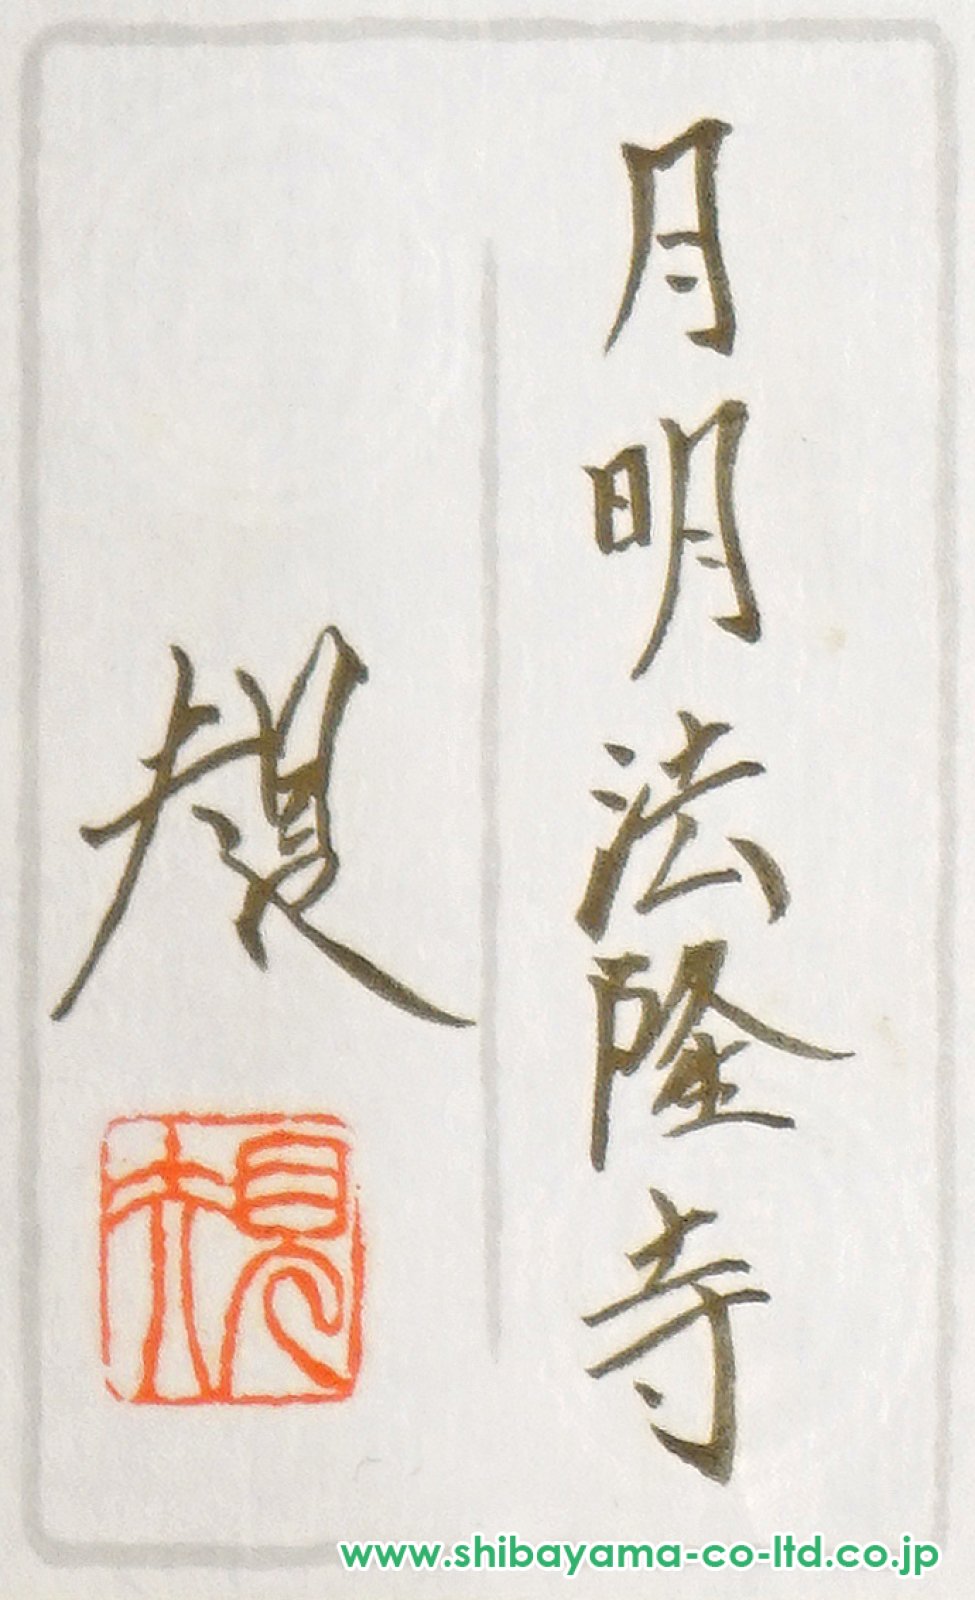 月明法隆寺
規
www.shibayama-co-ltd.co.jp